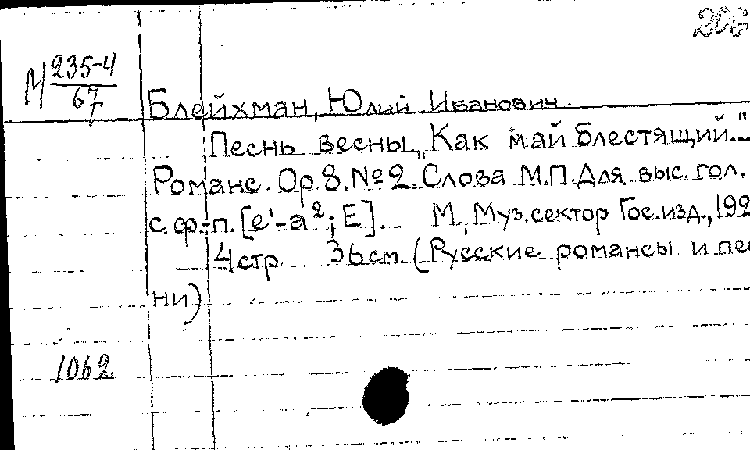 206
М 235-4
67
Блейхман, Юлий Иванович.
Песнь весны „Как май блестящий..."
Романс. Ор. 8. №2. Слова М.П. Для выс. гол.
с ф.-п. [e¹-a²; E]. М., Муз. сектор Гос. изд., 192
4 стр. 36 см. (Русские романсы и пес
ни)
1062